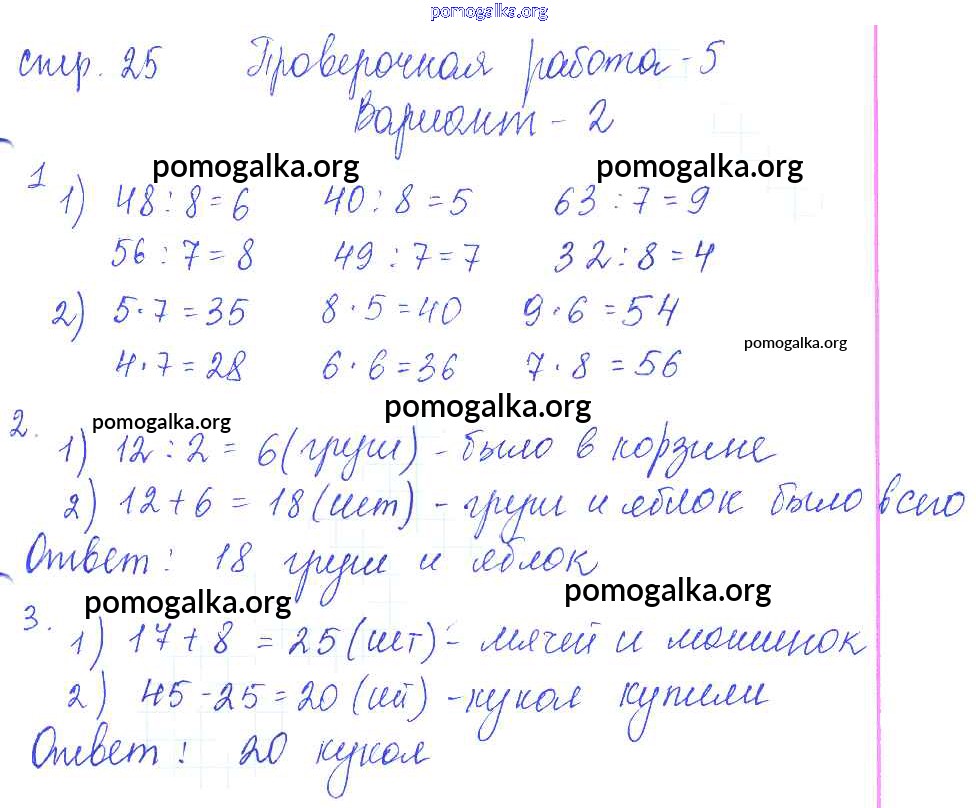 pomogalka.org
стр. 25 Проверочная работа - 5
Вариант - 2
pomogalka.org pomogalka.org
1 1) 48 : 8 = 6 40 : 8 = 5 63 : 7 = 9
56 : 7 = 8 49 : 7 = 7 32 : 8 = 4
2) 5 · 7 = 35 8 · 5 = 40 9 · 6 = 54
pomogalka.org
4 · 7 = 28 6 · 6 = 36 7 · 8 = 56
pomogalka.org
pomogalka.org
2. 1) 12 : 2 = 6 (груш) - было в корзине
2) 12 + 6 = 18 (шт) - груш и яблок было всего
Ответ: 18 груш и яблок
pomogalka.org pomogalka.org
3. 1) 17 + 8 = 25 (шт) - мячей и машинок
2) 45 - 25 = 20 (ш) - кукол купили
Ответ: 20 кукол